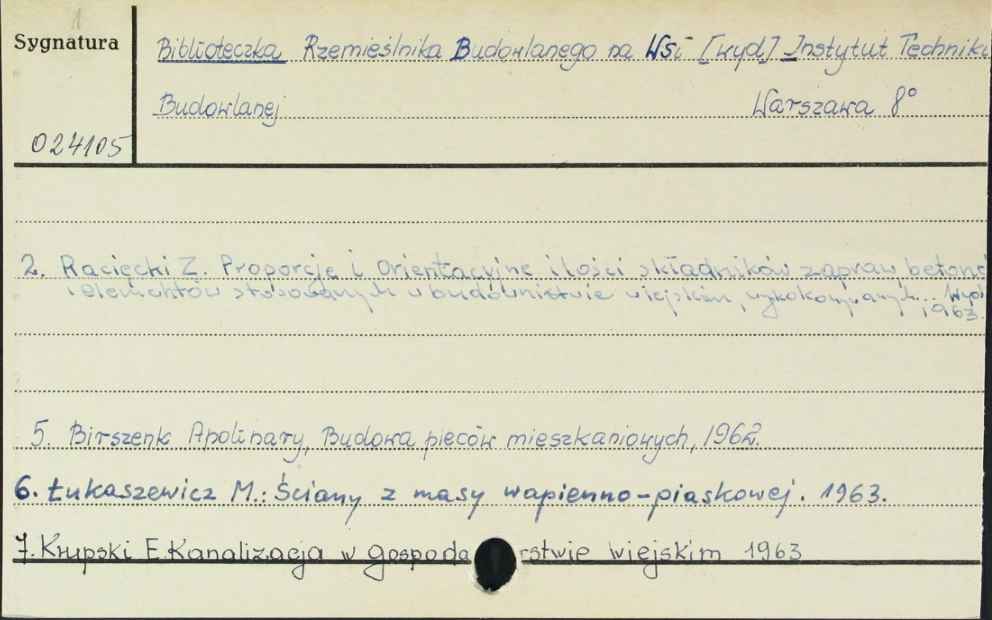 1
Sygnatura
Biblioteczka Rzemieślnika Budowlanego na Wsi [wyd] Instytut Techniki
Budowlanej Warszawa 8°
024105
2. Raciecki Z. Proporcje i orientacyjne ilości składników zapraw betonó
i elementów stosowanych w budownistwie wiejskim, wykokonywanych... Wyd
1963.
5. Birszenk Apolinary, Budowa pieców mieszkaniowych, 1962.
6. Łukaszewicz M.: Ściany z masy wapienno-piaskowej. 1963.
7. Krupski E. Kanalizacja w gospoda rstwie wiejskim 1963